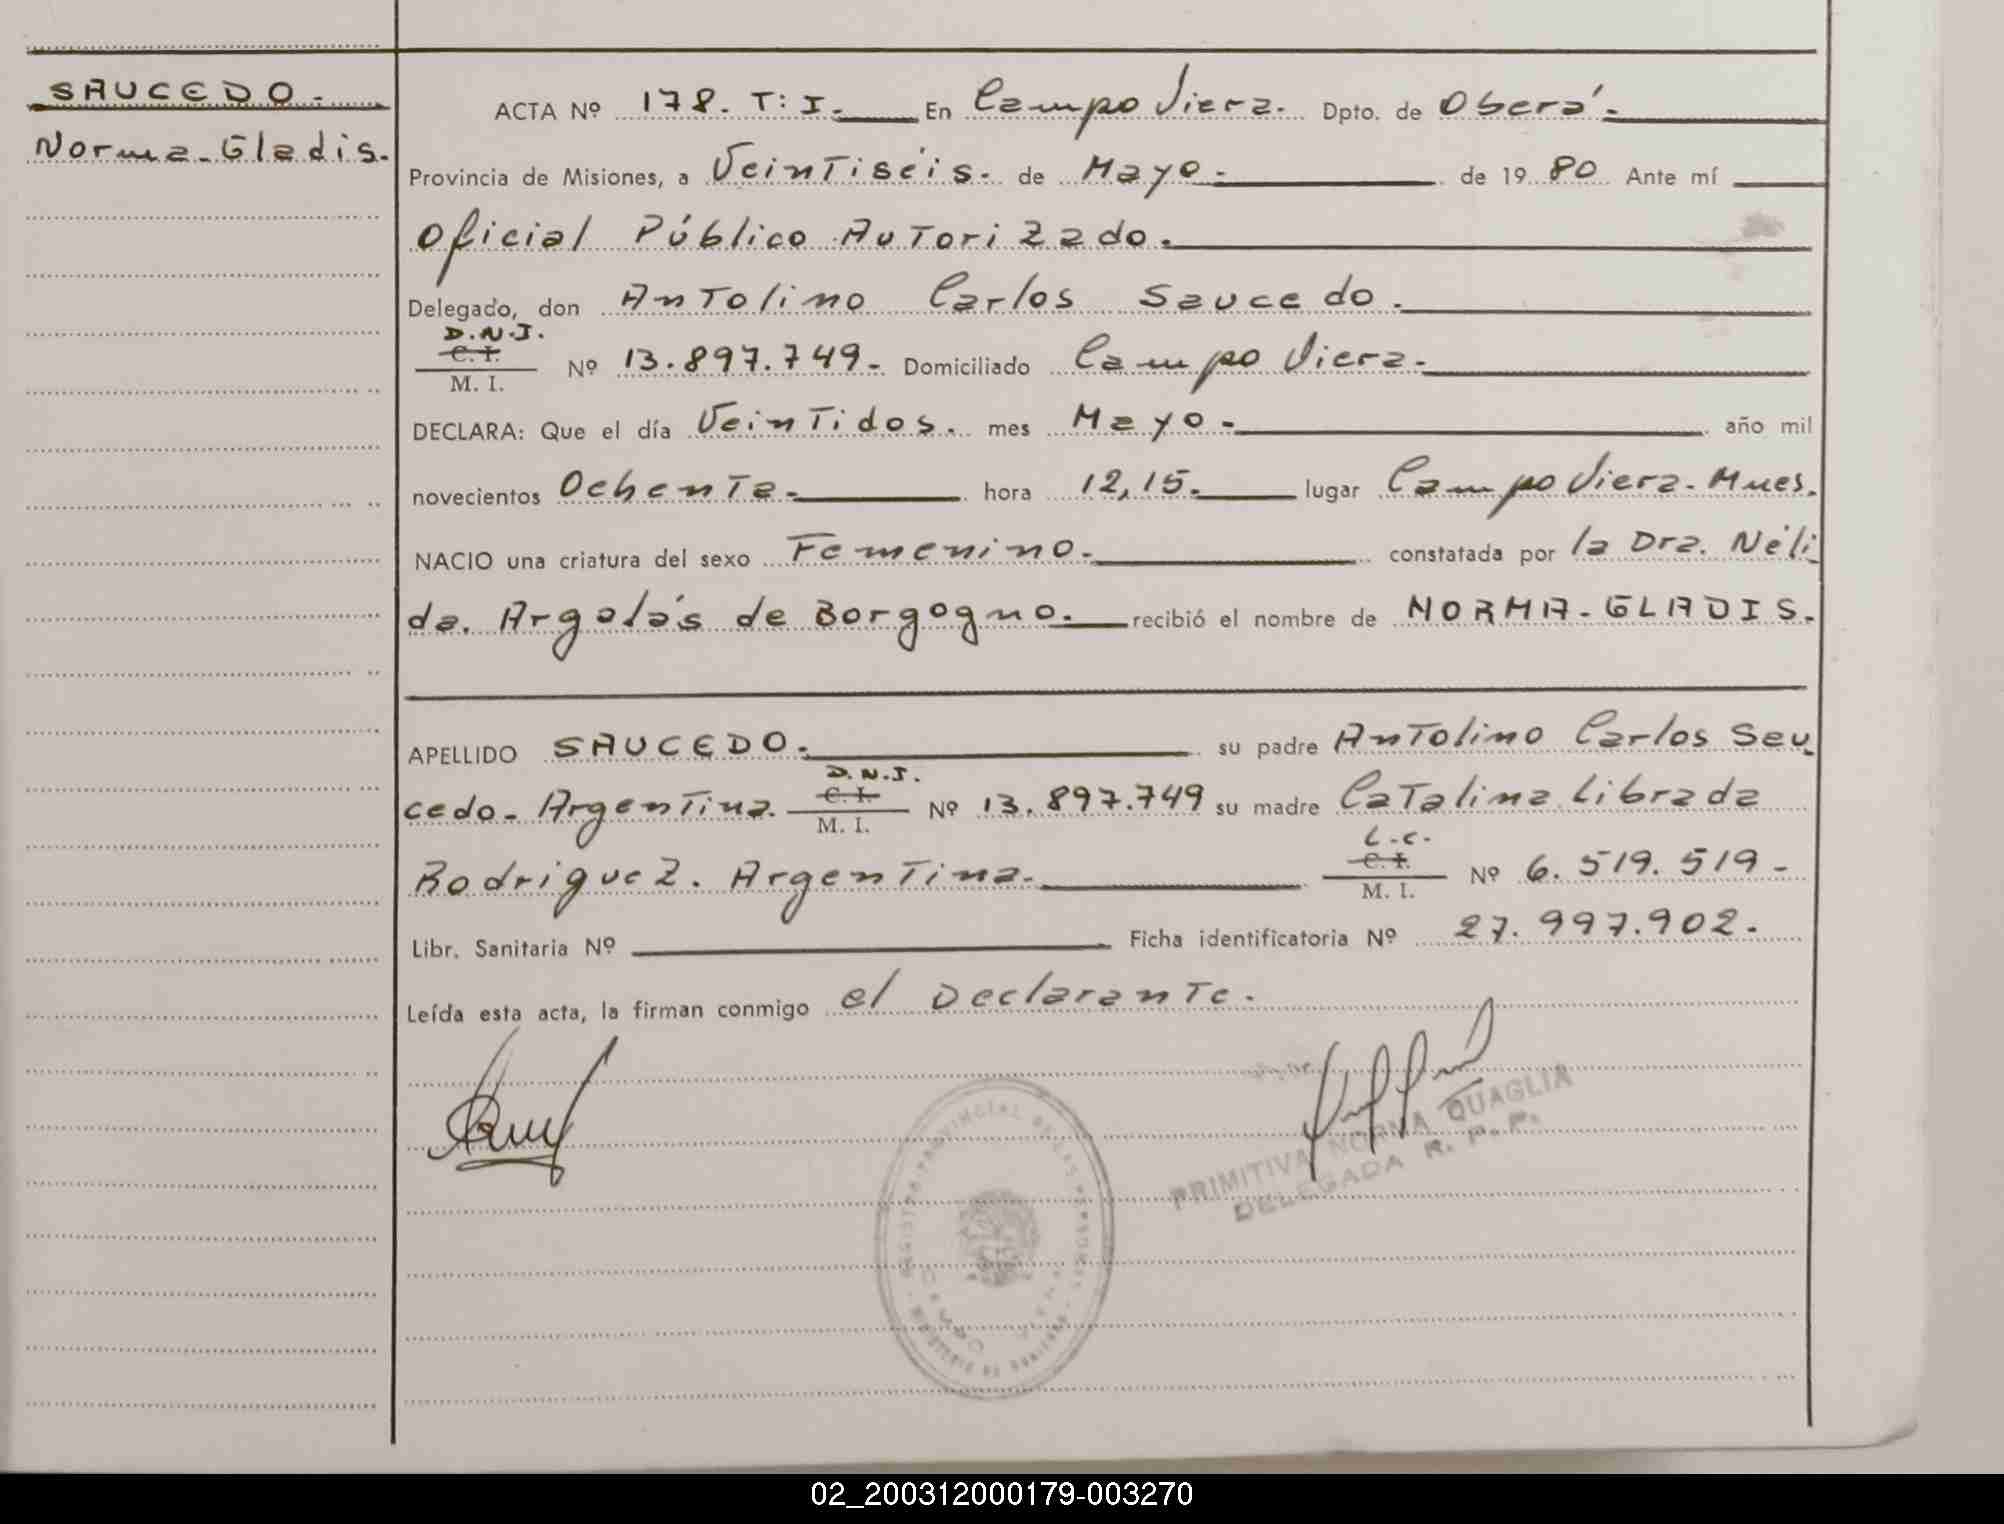 SAUCEDO.
Norma-Gladis.
ACTA Nº 178. T: I. En Campo Viera. Dpto. de Oberá.
Provincia de Misiones, a Veintiséis. de Mayo. de 1980 Ante mí
Oficial Público Autorizado.
Delegado, don Antolino Carlos Saucedo.
D.N.I.
C. I.
M. I. Nº 13.897.749- Domiciliado Campo Viera.
DECLARA: Que el día Veintidos. mes Mayo. año mil
novecientos Ochenta. hora 12,15. lugar Campo Viera. Mnes.
NACIO una criatura del sexo Femenino. constatada por la Dra. Néli
da. Argalás de Borgogno. recibió el nombre de NORMA-GLADIS.
APELLIDO SAUCEDO. su padre Antolino Carlos Sau
D.N.I.
C. I.
cedo- Argentina. M. I. Nº 13.897.749 su madre Catalina Librada
L.C.
C. I.
Rodriguez. Argentina. M. I. Nº 6.519.519-
Libr. Sanitaria Nº Ficha identificatoria Nº 27.997.902.
Leída esta acta, la firman conmigo el Declarante.
PRIMITIVA NORMA QUAGLIA
DELEGADA R. P. P.
REGISTRO PROVINCIAL DE LAS PERSONAS
MINISTERIO DE GOBIERNO
02_200312000179-003270